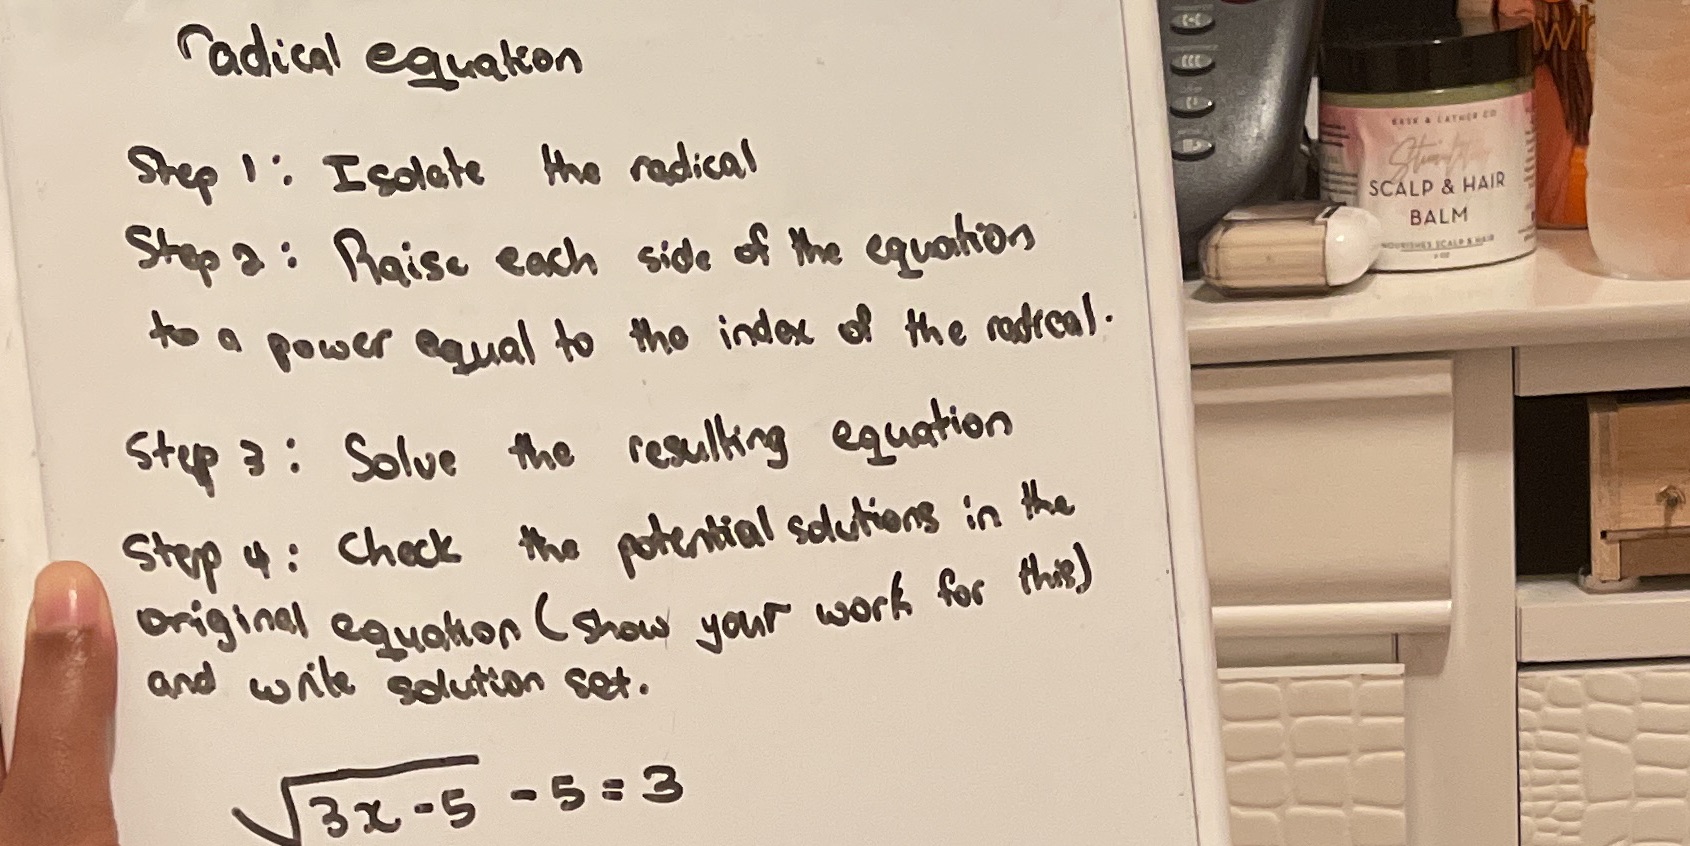 radical equation
Step 1: Isolate the radical
Step 2: Raise each side of the equation
to a power equal to the index of the radical.
Step 3: Solve the resulting equation
Step 4: Check the potential solutions in the
original equation (show your work for this)
and write solution set.
√3x-5 - 5 = 3
SCALP & HAIR
BALM
NOURISHES SCALP & HAIR